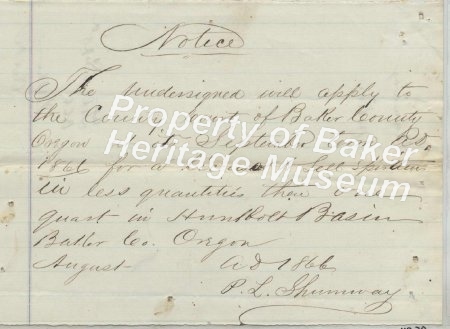 Notice
The undersigned will apply to
the County Court of Baker County
Oregon September Term A.D.
1866 for a to Sell
in less quantities then one
quart in Humbolt Basin
Baker Co. Oregon
August AD 1866
P. L. Shumway
Property of Baker
Heritage Museum